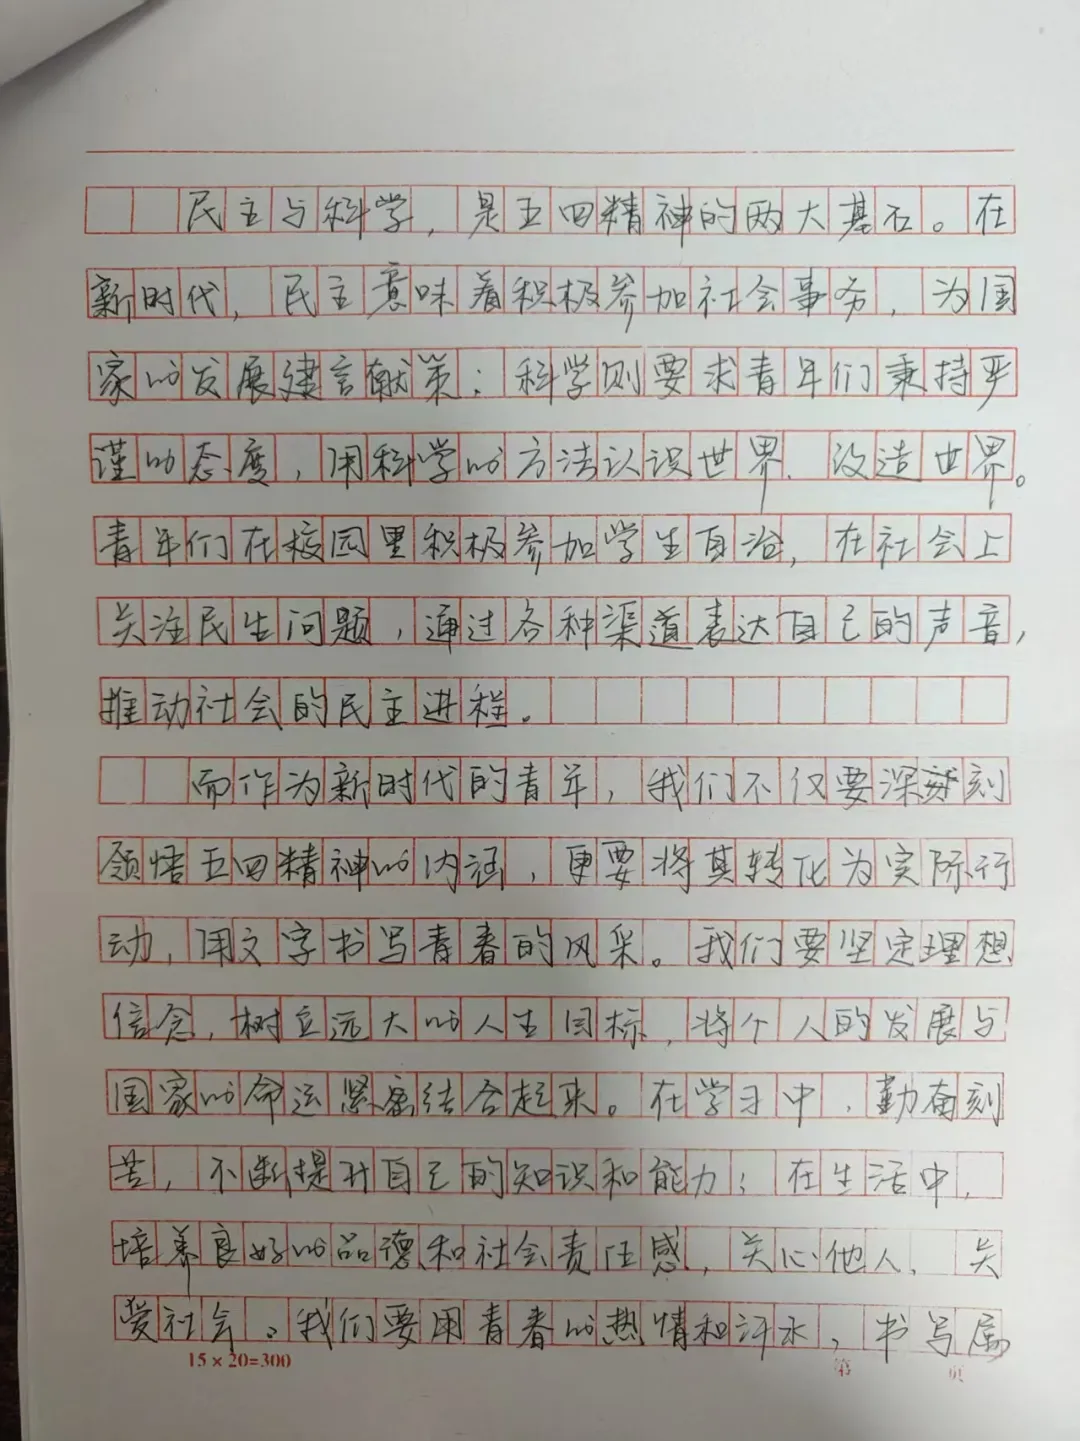 民主与科学，是五四精神的两大基石。在
新时代，民主意味着积极参加社会事务，为国
家的发展建言献策；科学则要求青年们秉持严
谨的态度，用科学的方法认识世界、改造世界。
青年们在校园里积极参加学生自治，在社会上
关注民生问题，通过各种渠道表达自己的声音，
推动社会的民主进程。
而作为新时代的青年，我们不仅要深刻
领悟五四精神的内涵，更要将其转化为实际行
动，用文字书写青春的风采。我们要坚定理想
信念，树立远大的人生目标，将个人的发展与
国家的命运紧密结合起来。在学习中，勤奋刻
苦，不断提升自己的知识和能力；在生活中，
培养良好的品德和社会责任感，关心他人、关
爱社会。我们要用青春的热情和汗水，书写属
15×20=300
第 页